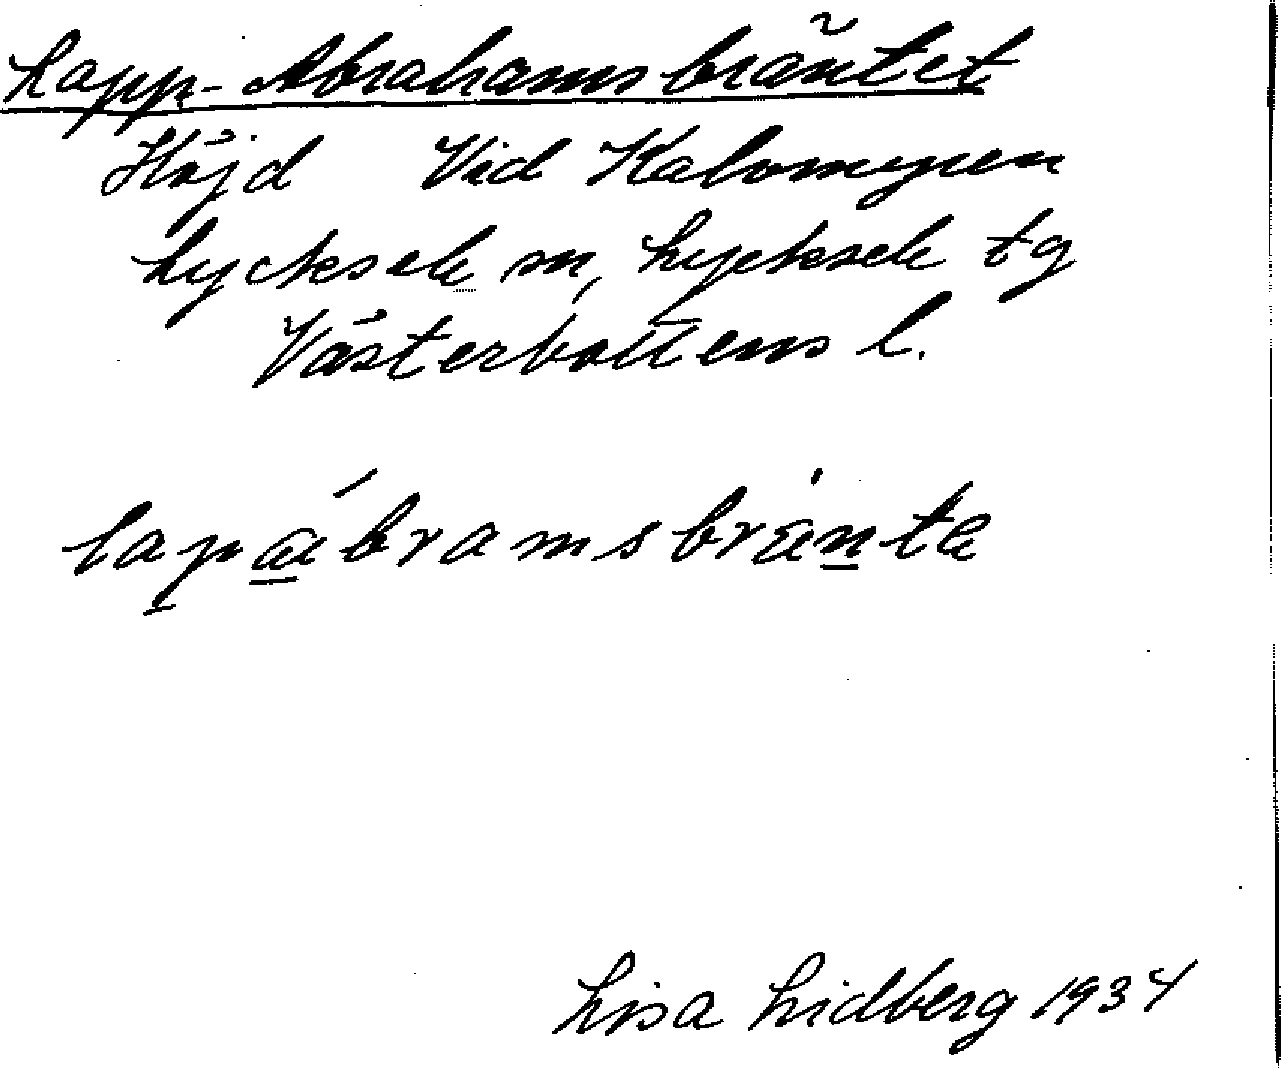 Lapp-Abrahamsbräntet
Höjd Vid Kalvmyren
Lycksele sn, Lycksele tg
Västerbottens l.
lapabramsbränte
Lisa Lidberg 1934